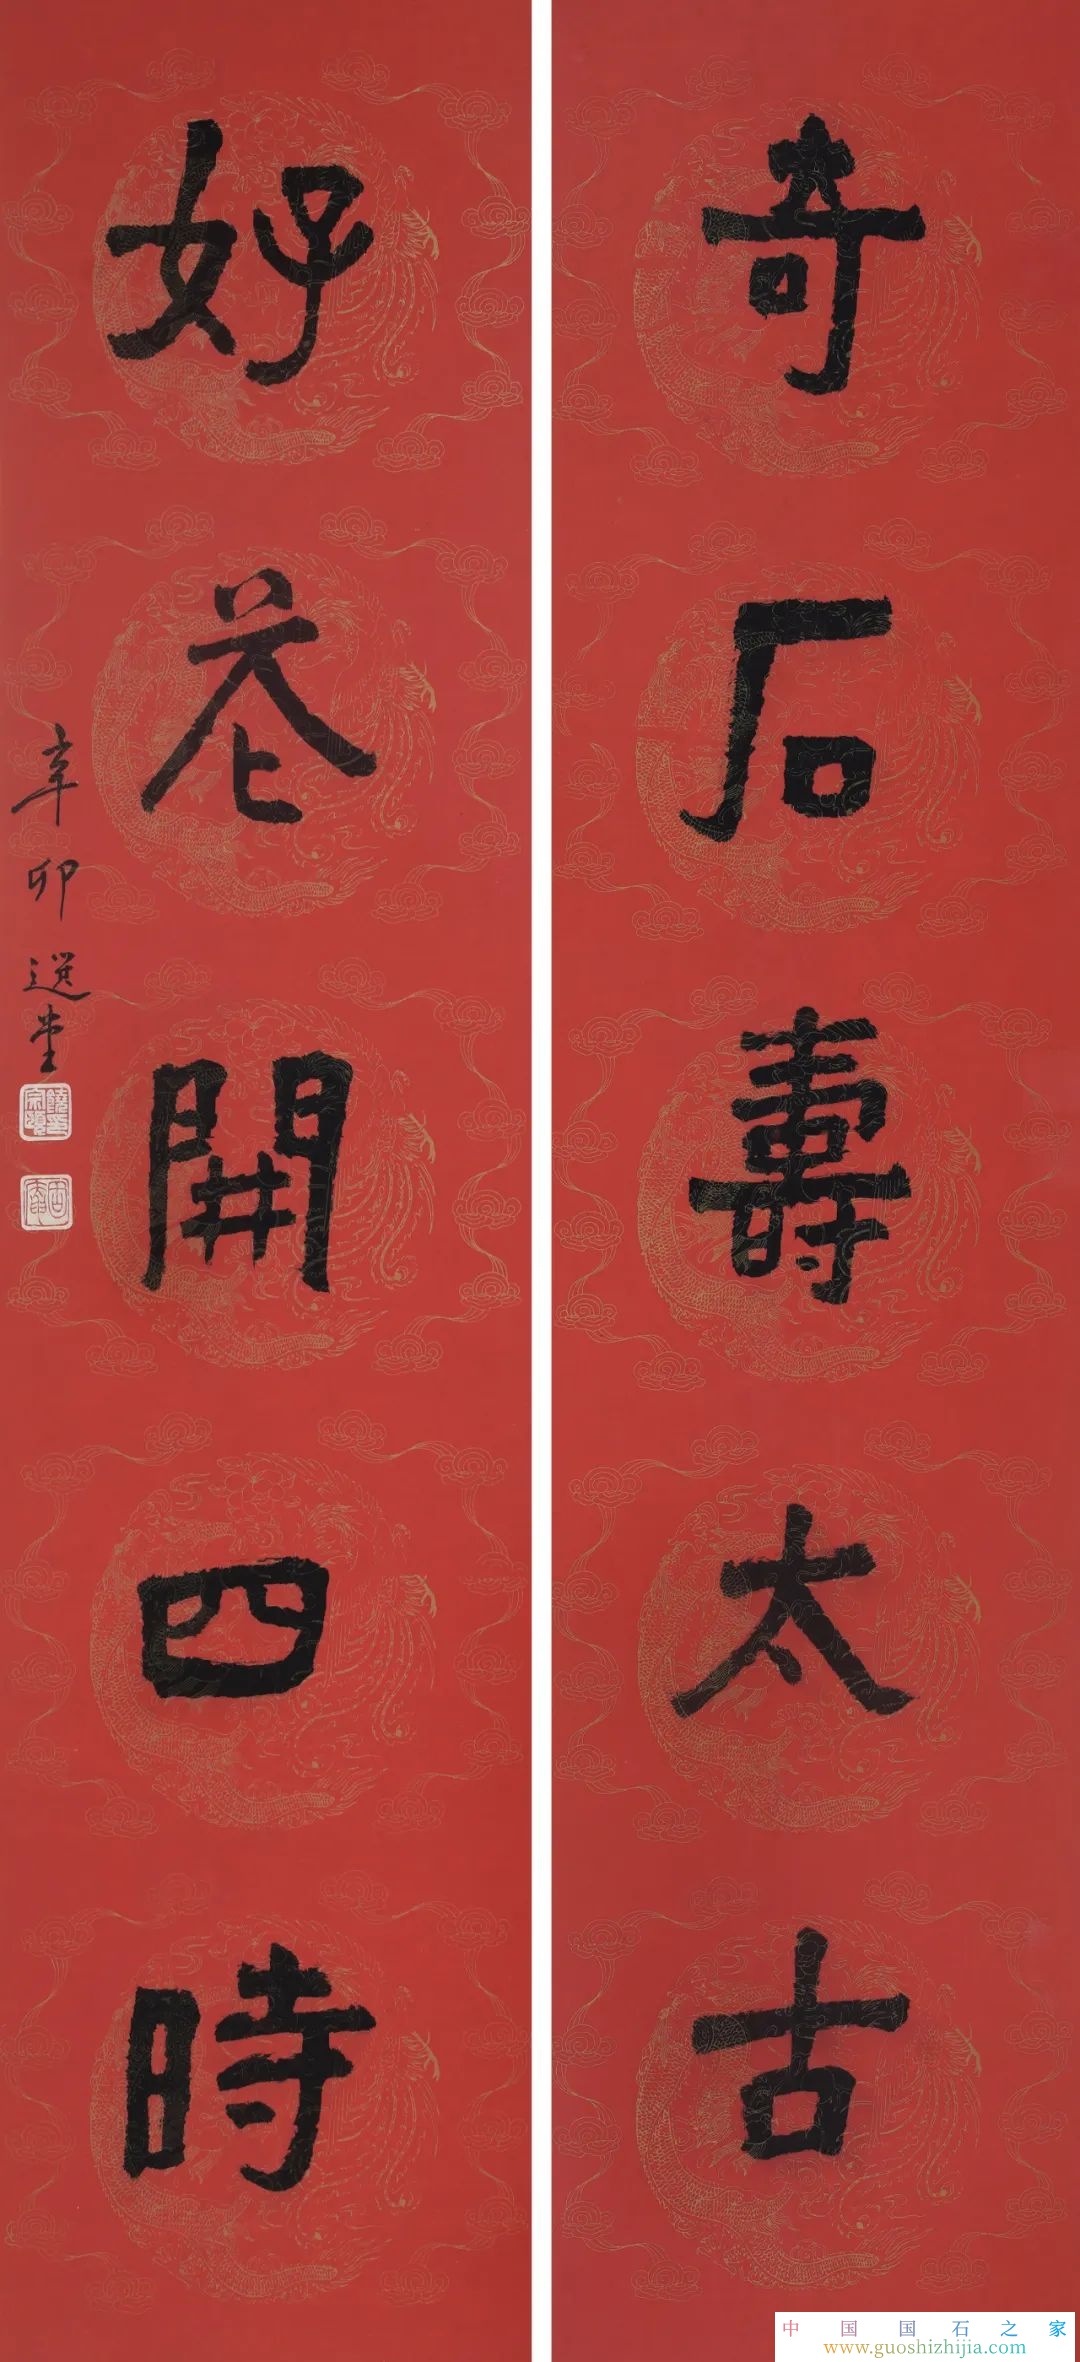 奇石壽太古
好花開四時
辛卯 選堂
饒宗頤印
中国国石之家
www.guoshizhijia.com